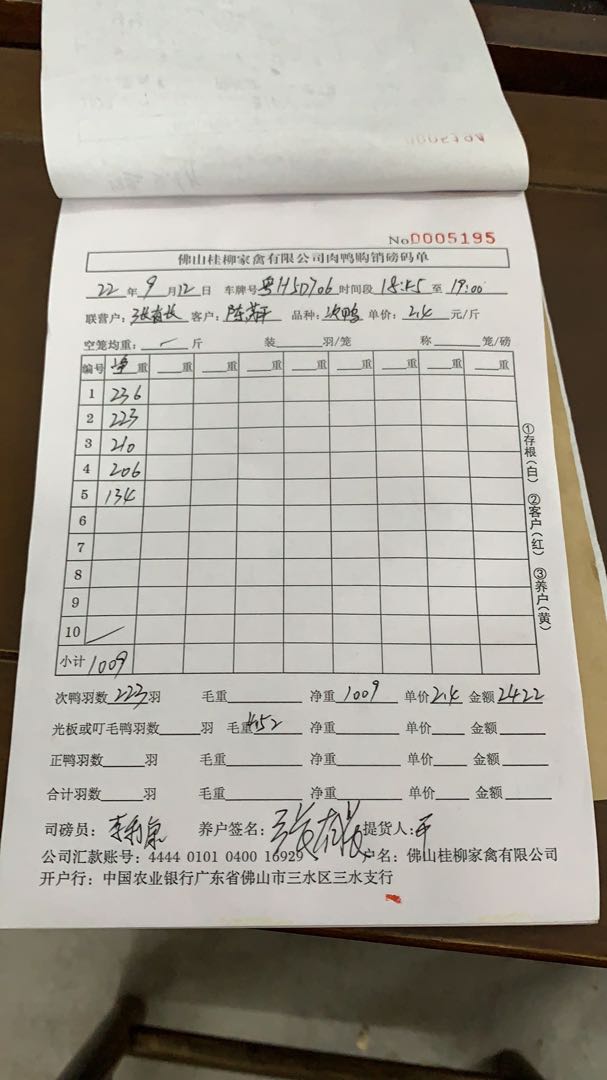 No 0005195
佛山桂柳家禽有限公司肉鸭购销磅码单
22 年 9 月 12 日 车牌号 粤H5D706 时间段 18:45 至 19:00
联营户： 客户： 品种：次鸭 单价：2.4 元/斤
空笼均重： 斤 装 羽/笼 称 笼/磅
编号 净重 重 重 重 重 重 重 重 重
1 236
2 223
3 210
4 206
5 134
6
7
8
9
10
小计 1009
①存根(白) ②客户(红) ③养户(黄)
次鸭羽数 223 羽 毛重 净重 1009 单价 2.4 金额 2422
光板或叮毛鸭羽数 羽 毛重 4.52 净重 单价 金额
正鸭羽数 羽 毛重 净重 单价 金额
合计羽数 羽 毛重 净重 单价 金额
司磅员： 养户签名： 提货人：
公司汇款账号：4444 0101 0400 16929 户名：佛山桂柳家禽有限公司
开户行：中国农业银行广东省佛山市三水区三水支行